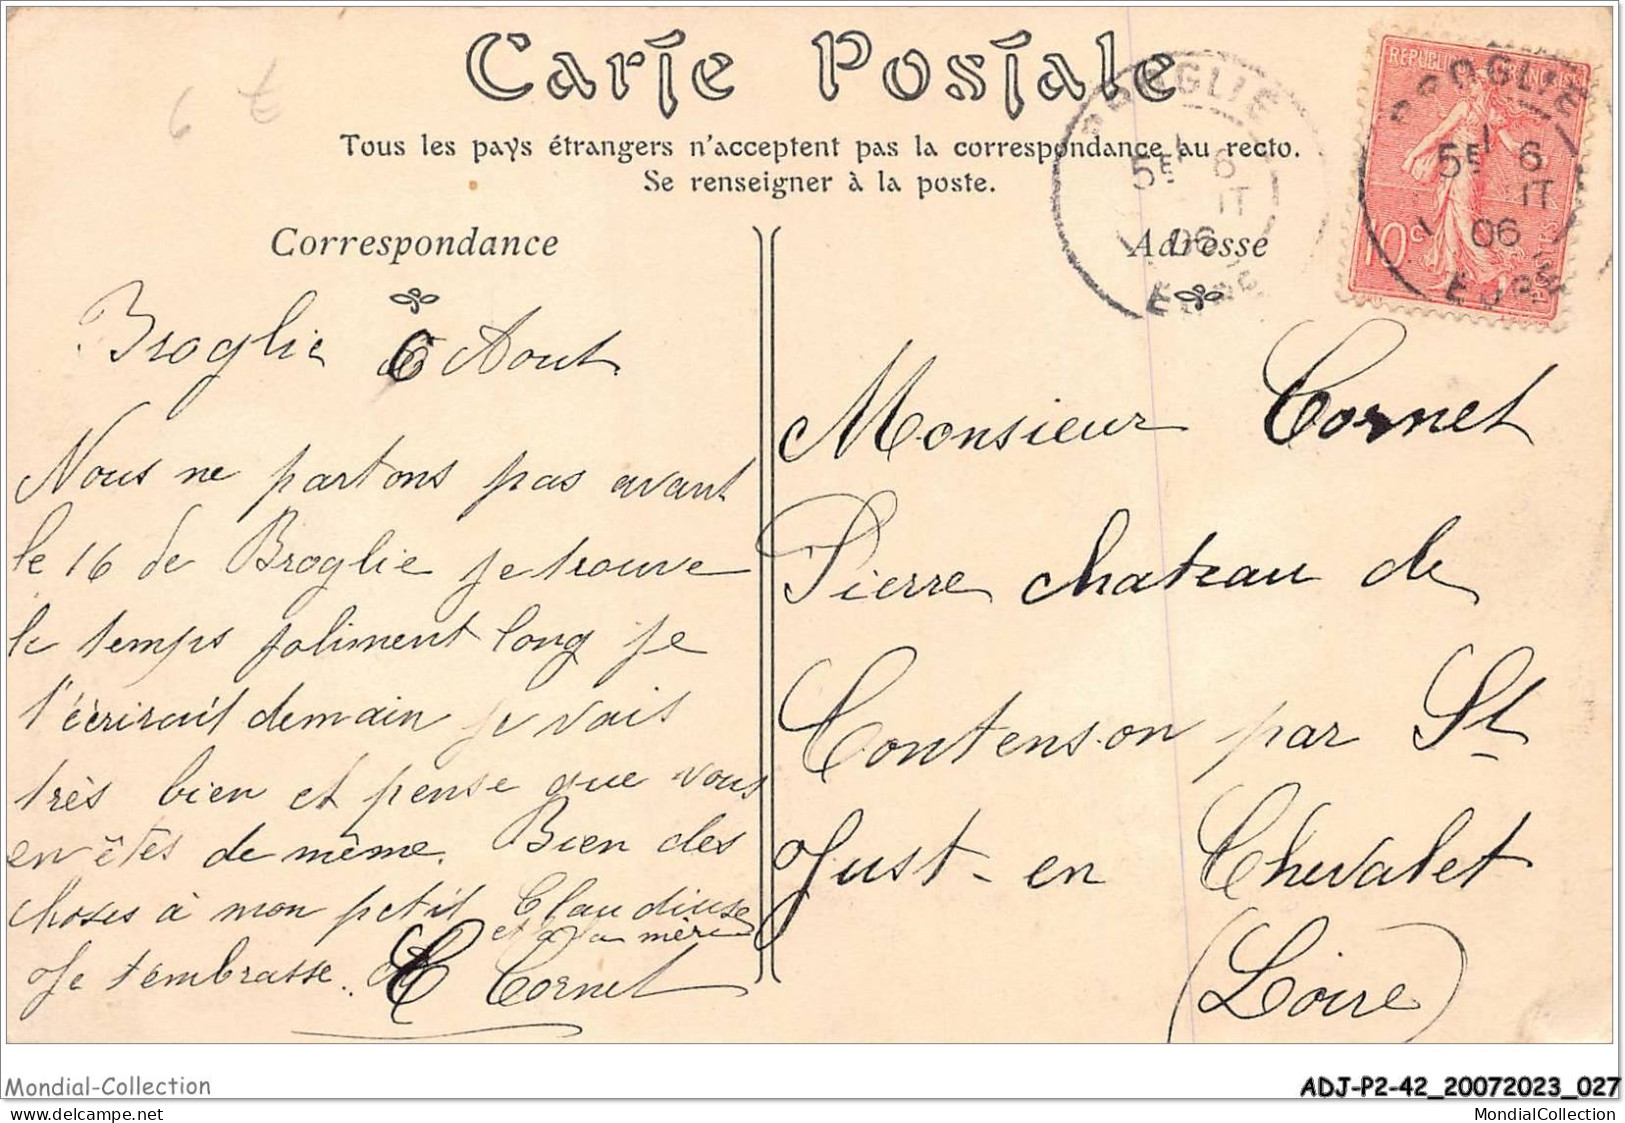 Carte Postale
Tous les pays étrangers n'acceptent pas la correspondance au recto.
Se renseigner à la poste.
Correspondance
Adresse
BROGLIE
5E 6
IT
06
EURE
REPUBLIQUE FRANÇAISE
10c
POSTES
BROGLIE
5E 6
IT
06
EURE
6 €
Broglie 6 Aout
Nous ne partons pas avant
le 16 de Broglie je trouve
le temps joliment long je
t'écrirait demain je vais
très bien et pense que vous
en êtes de même. Bien des
choses à mon petit Claudiuse
et à sa mère
Je t'embrasse. C Cornet
Monsieur Cornet
Pierre chateau de
Contenson par St
Just-en Chevalet
(Loire)
Mondial-Collection
ADJ-P2-42_20072023_027
MondialCollection